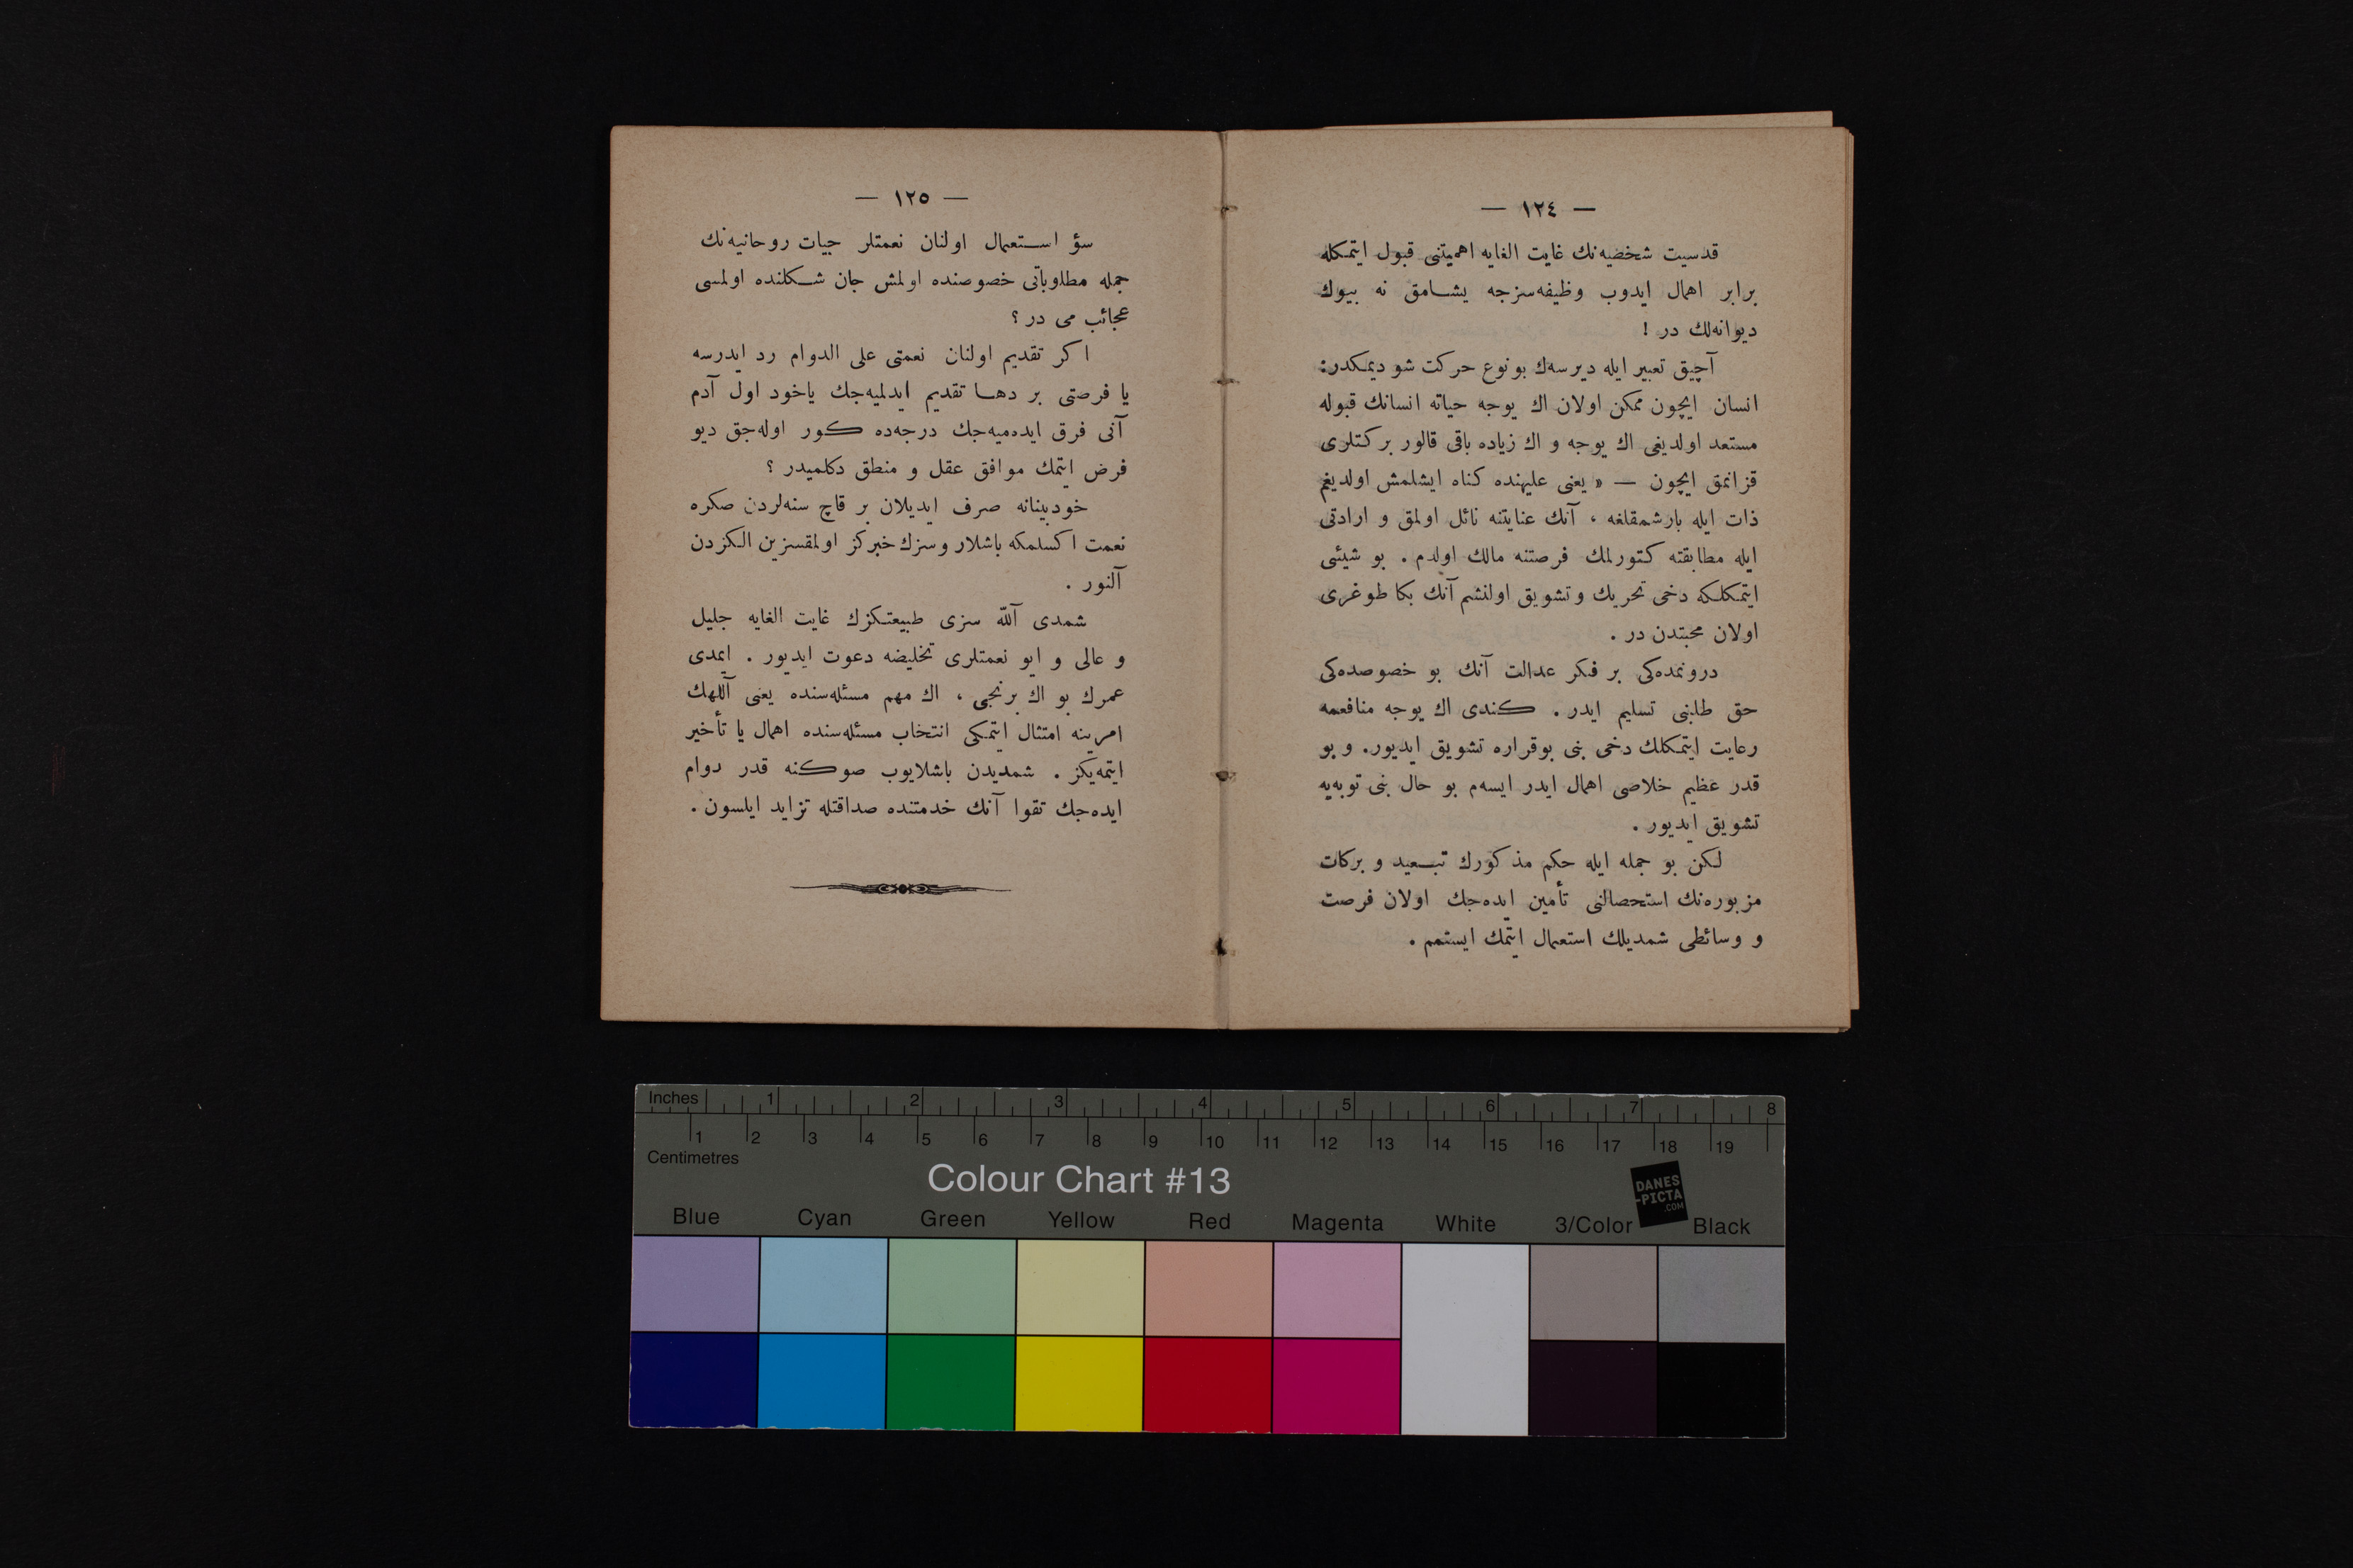 — ١٢٤ —
قدسیت شخضیه‌نك غایت الغایه اهمیتنی قبول ایتمكله
برابر اهمال ایدوب وظیفه‌سزجه یشامق نه بیوك
دیوانه‌لك در !
آچیق تعبیر ایله دیرسه‌ك بو نوع حركت شو دیمكدر:
انسان ایچون ممكن اولان اك یوجه حیاته انسانك قبوله
مستعد اولدیغی اك یوجه و اك زیاده باقی قالور بركتلری
قزانمق ایچون — « یعنی علیهنده كناه ایشلمش اولدیغم
ذات ایله بارشمقلغه ، آنك عنایتنه نائل اولمق و ارادتی
ایله مطابقته كتورلمك فرصتنه مالك اولدم . بو شیئی
ایتمكلكه دخی تحریك و تشویق اولنشم آنك بكا طوغری
اولان محبتدن در .
درونمده‌كی بر فكر عدالت آنك بو خصوصده‌كی
حق طلبنی تسلیم ایدر . كندی اك یوجه منافعمه
رعایت ایتمكلك دخی بنی بوقراره تشویق ایدیور. و بو
قدر عظیم خلاصی اهمال ایدر ایسه‌م بو حال بنی توبه‌یه
تشویق ایدیور .
لكن بو جمله ایله حكم مذكورك تبعید و بركات
مزبوره‌نك استحصالنی تأمین ایده‌جك اولان فرصت
و وسائطی شمدیلك استعمال ایتمك ایستمم .
— ١٢٥ —
سؤ استعمال اولنان نعمتلر حیات روحانیه‌نك
جمله مطلوباتی خصوصنده اولمش جان شكلنده اولمسی
عجائب می در ؟
اكر تقدیم اولنان نعمتی علی الدوام رد ایدرسه
یا فرصتی بر دها تقدیم ایدلمیه‌جك یاخود اول آدم
آنی فرق ایده‌میه‌جك درجه‌ده كور اوله‌جق دیو
فرض ایتمك موافق عقل و منطق دكلمیدر ؟
خودبینانه صرف ایدیلان بر قاچ سنه‌لردن صكره
نعمت اكسلمكه باشلار وسزك خبركز اولمقسزین الكزدن
آلنور .
شمدی آللّه سزی طبیعتكزك غایت الغایه جلیل
و عالی و ایو نعمتلری تخلیضه دعوت ایدیور . ایمدی
عمرك بو اك برنجی ، اك مهم مسئله‌سنده یعنی آللهك
امرینه امتثال ایتمكی انتخاب مسئله‌سنده اهمال یا تأخیر
ایتمه‌یكز . شمدیدن باشلایوب صوكنه قدر دوام
ایده‌جك تقوا آنك خدمتنده صداقتله تزاید ایلسون .
Inches 1 2 3 4 5 6 7 8
1 2 3 4 5 6 7 8 9 10 11 12 13 14 15 16 17 18 19
Centimetres
Colour Chart #13
DANES
-PICTA
.COM
Blue Cyan Green Yellow Red Magenta White 3/Color Black